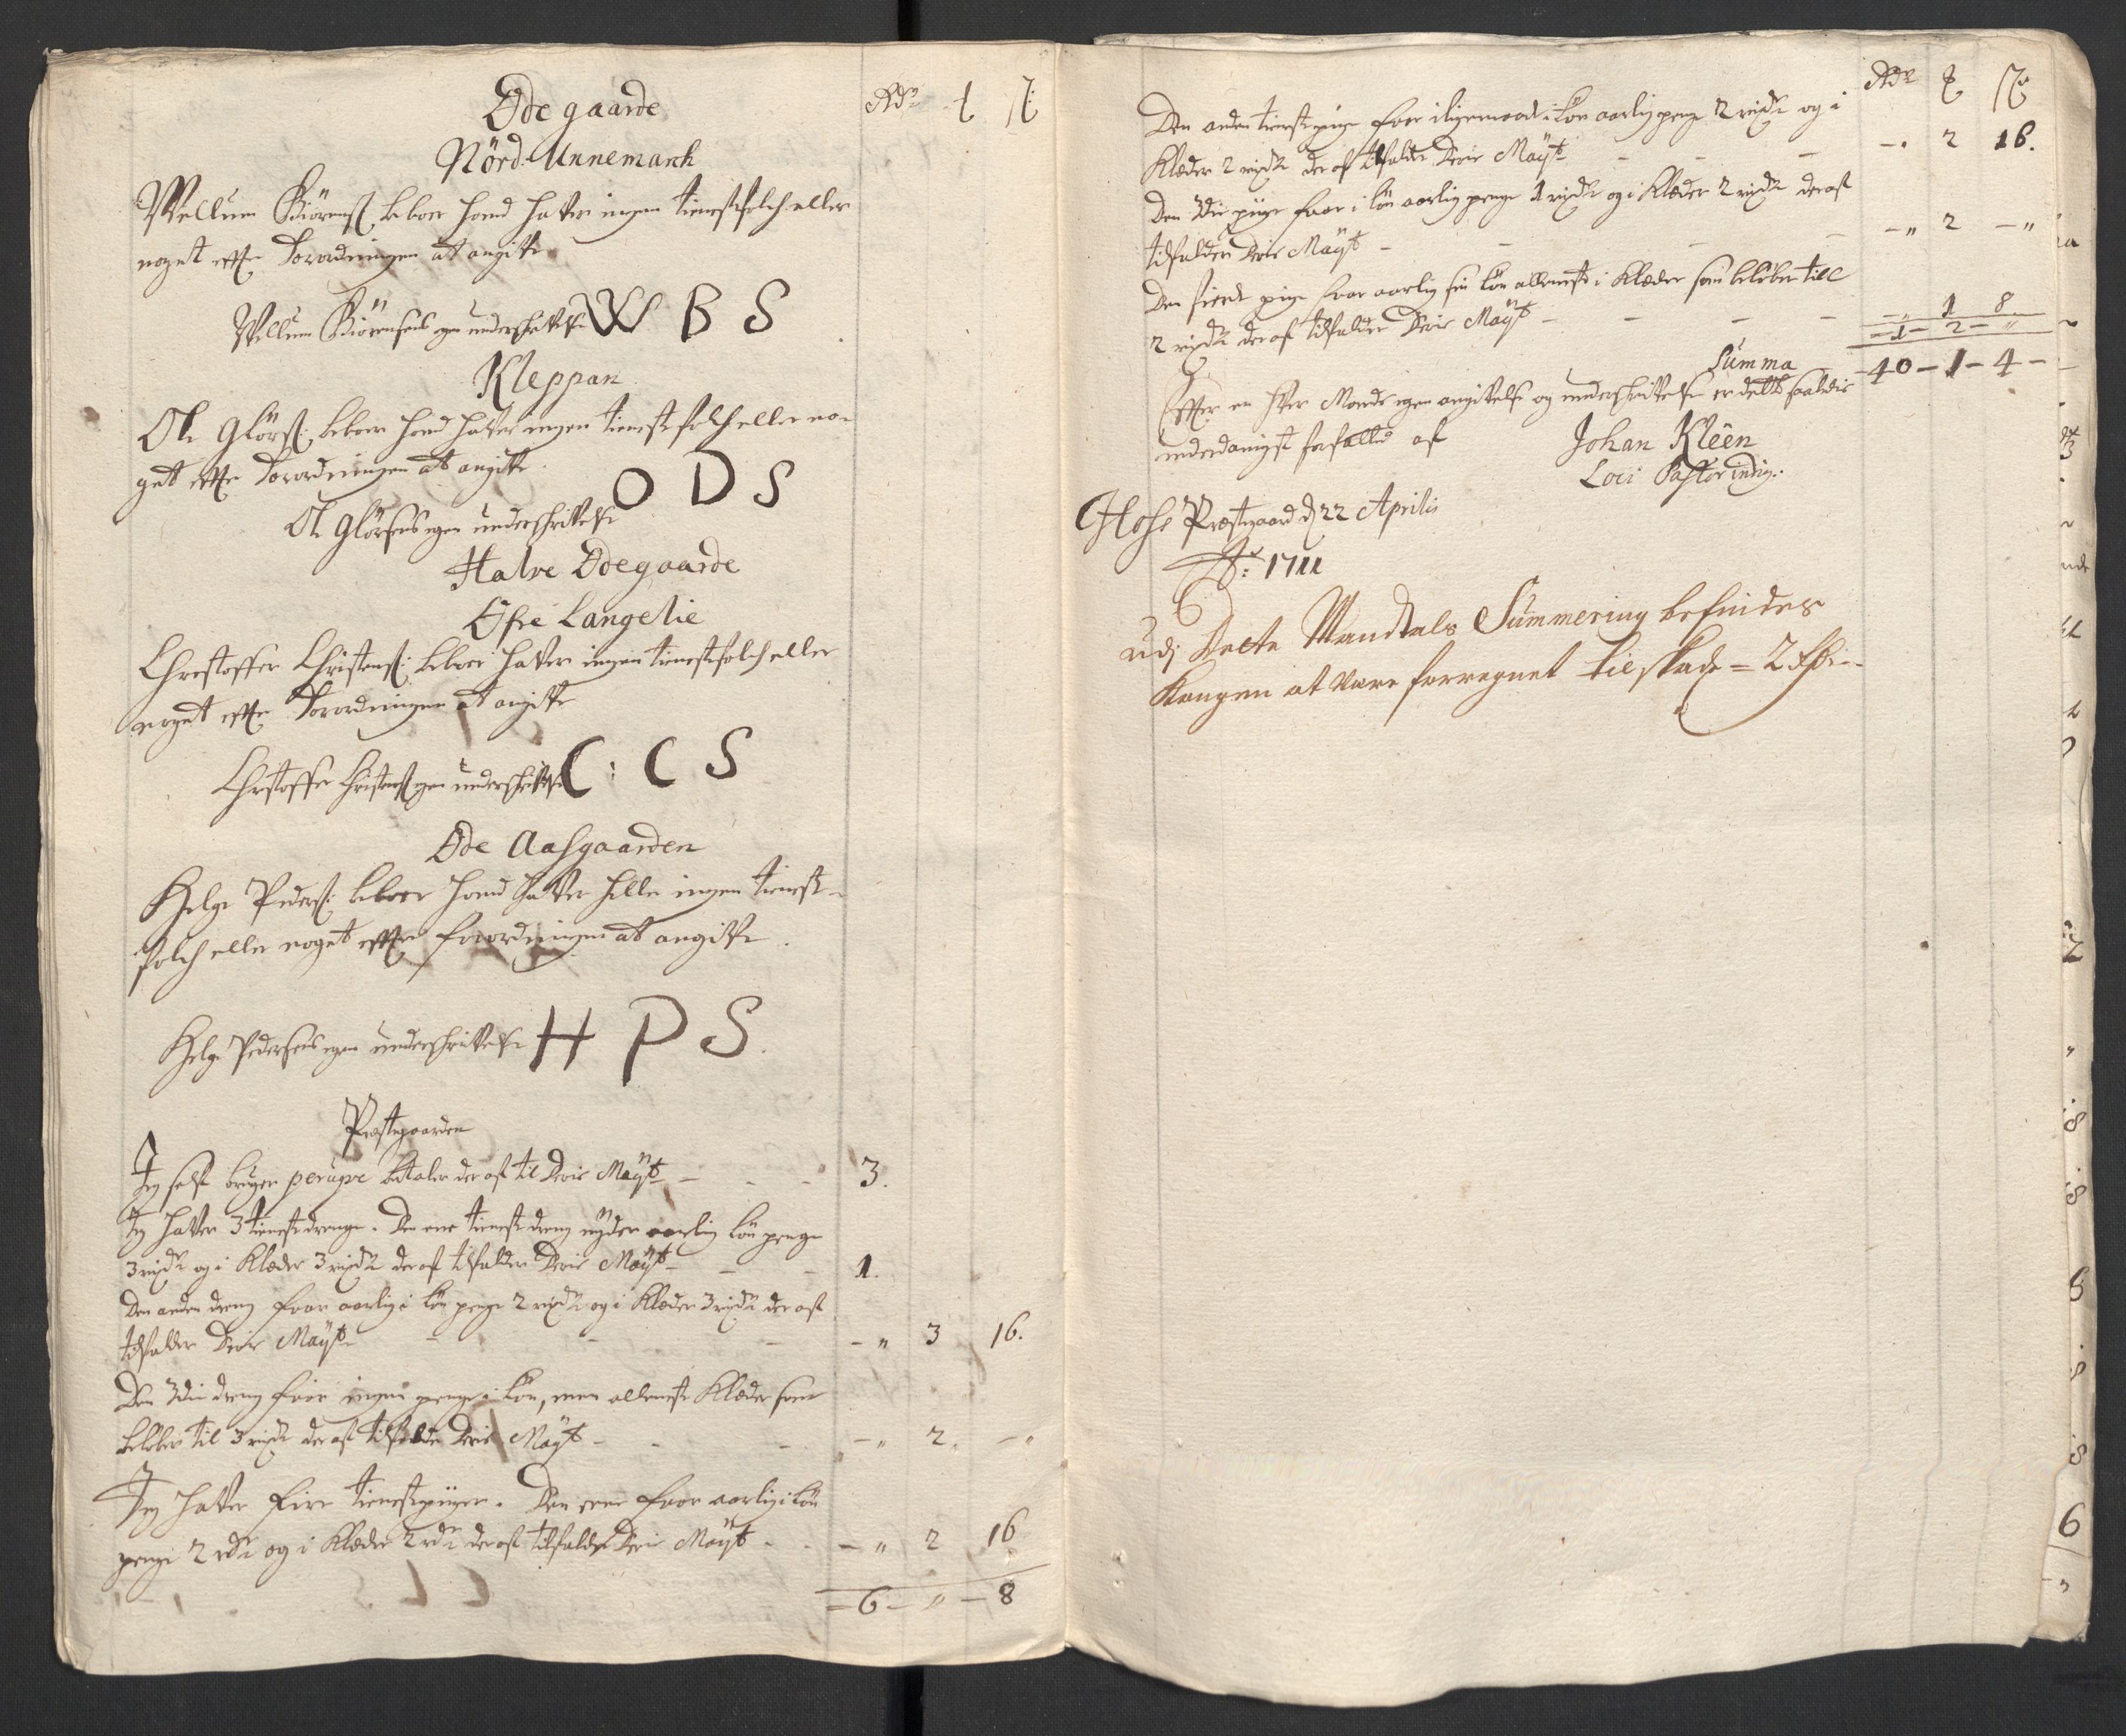 Øde gaarde
Rdr
Nörd Unnemarch
Wellum Biörens: beboer hand hafver ingen tienestfolch eller
noget efter Forordningen at angifve
Wellum Biörensens egen underschrifvelse W B S
Kleppan
Ole Glörs: beboer hand hafver ingen tienestfolch eller no-
get efter Forordningen at angifve
O D S
Ole Glörsens egen underschrifvelse
Halve Ødegaarde
Øfre Langelie
Christoffer Christens: beboer hafver ingen tienestfolch eller
noget efter Forordningen at angifve
Christoffer Christens: egen underschrifvelse C : C S
Øde Aasgaarden
Helge Peders: beboer hand hafver heller ingen tienest-
folch eller noget efter forordningen at angifve
Helge Pedersens egen underschrifvelse H P S.
Præstegaarden
Jeg self bruger peruque betaler der af til Deris Mayst - 3.
Jeg hafver 3 tieneste drenge. Den ene tieneste dreng nyder aarlig lön penge
3 rixdr og i Klæder 3 rixdr der af tilfalder Deris Mayst - 1.
Den anden dreng faar aarlig i lön penge 2 rixdr og i Klæder 3 rixdr der af
tilfalder Deris Mayst - " 3 16.
Den 3die dreng faar ingen penge i lön, men alleneste Klæder som
belöber til 3 rixdr der af tilfalder Deris Mayst - " 2 - "
Jeg hafver fire tienestepiiger. Den eene faar aarlig i lön
penge 2 rdr og i Klæder 2 rdr der af tilfalder Deris Mayst - " 2 16
- 6 - " - 8
Rdr
Den anden tienestepige faar i ligemaade i lön aarlig penge 2 rixdr og i
Klæder 2 rixdr der af tilfalder Deris Mayst - 2 16.
Den 3die piige faar i lön aarlig penge 1 rixdr og i Klæder 2 rixdr der af
tilfalder Deris Mayst - " 2 - "
Den fierde pige faar aarlig sin lön alleneste i Klæder som belöber till
2 rixdr der af tilfalder Deris Mayst - " 1 8
- 1 - 2 - "
Summa - 40 - 1 - 4 -
Efter en hver Mands egen angifvelse og underschrifvelse er dette saaledis
underdanigst forfatted af Johan Kleen
Loci Pastor indig:
Præstegaard d 22 Aprilis
Ao: 1711
Udj Dette Mandtals Summering befindes
Kongen at være forregnet til skade = 2